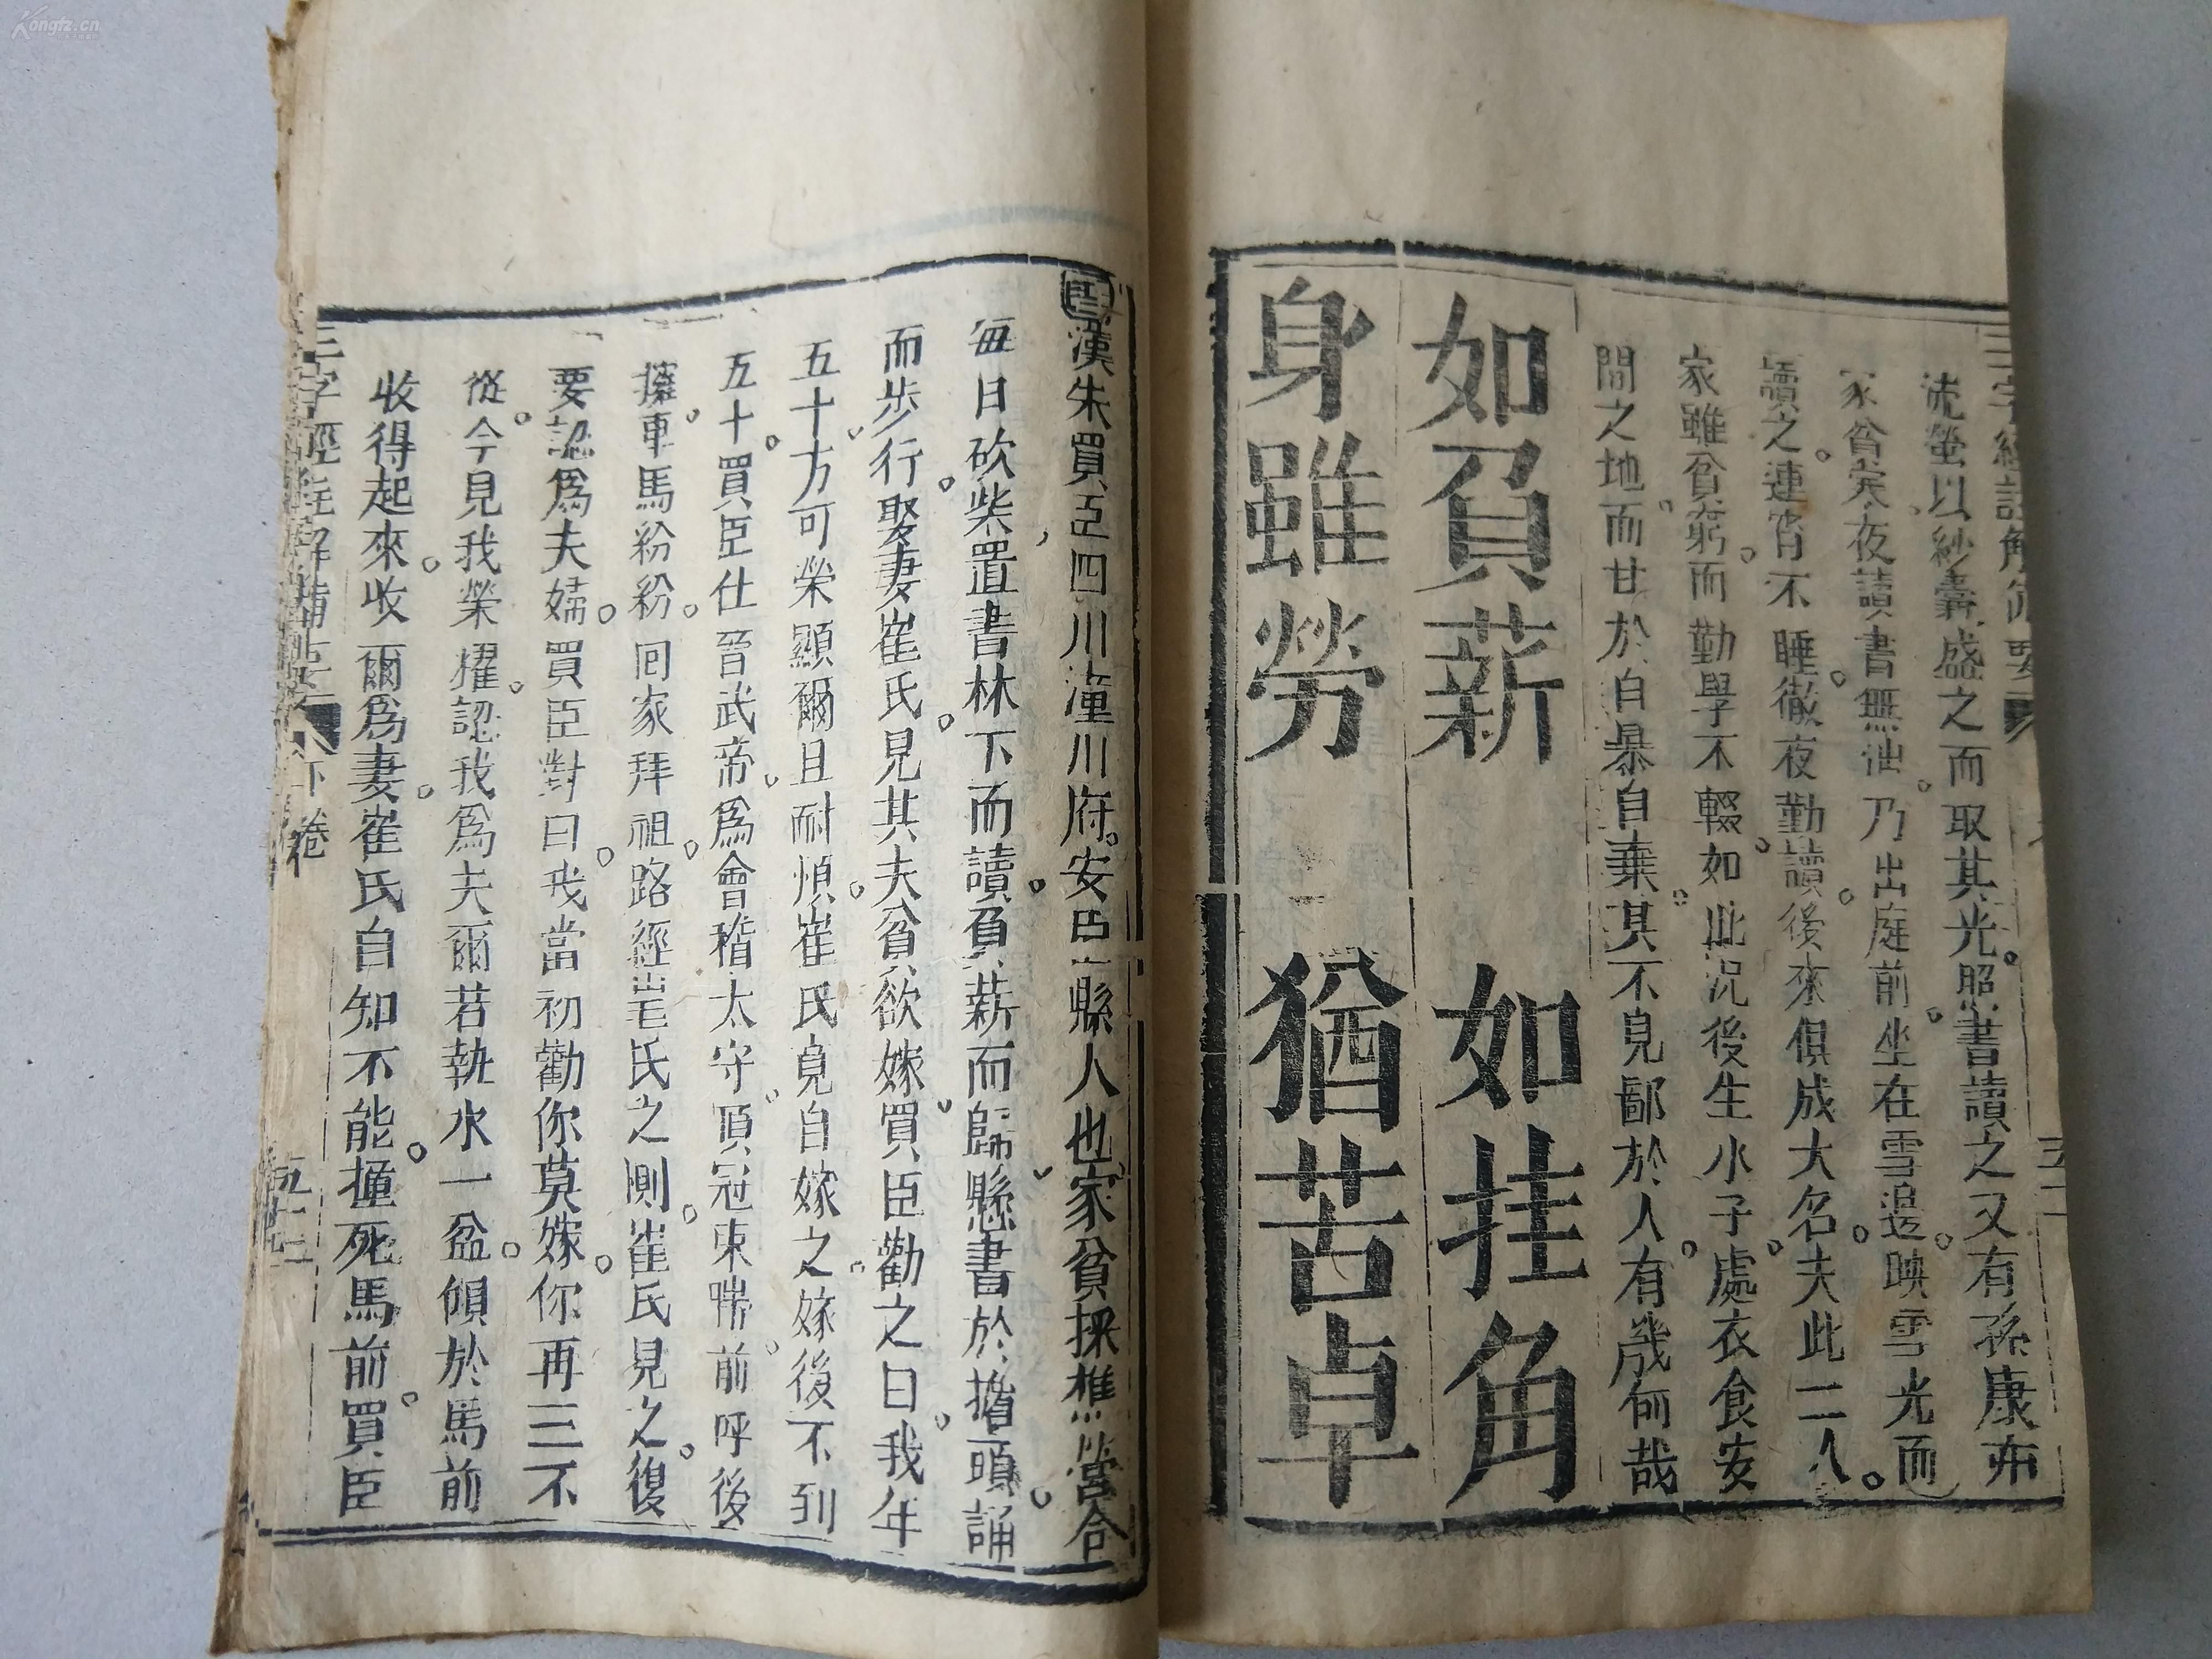 Kongfz.cn
流螢以紗囊盛之而取其光照書讀之又有孫康亦
家貧柴夜讀書無油乃出庭前坐在雪邊映雪光而
讀之連宵不睡徹夜勤讀後來俱成大名夫此二人
家雖貧窮而勤學不輟如此况後生小子處衣食安
閒之地而甘於自暴自棄其不見鄙於人有幾何哉
如負薪 如挂角
身雖勞 猶苦卓
漢朱買臣四川潼川府安岳縣人也家貧採樵營合
每日砍柴置書林下而讀負薪而歸懸書於擔頭誦
而步行娶妻崔氏見其夫貧欲嫁買臣勸之曰我年
五十方可榮顯爾且耐煩崔氏竟自嫁之嫁後不到
五十買臣仕晉武帝為會稽太守頂冠束帶前呼後
擁車馬紛紛回家拜祖路經崔氏之側崔氏見之復
要認為夫婦買臣對曰我當初勸你莫嫁你再三不
從今見我榮耀認我為夫爾若執水一盆傾於馬前
收得起來收爾為妻崔氏自知不能撞死馬前買臣
三字經註解備要 下卷 五十二